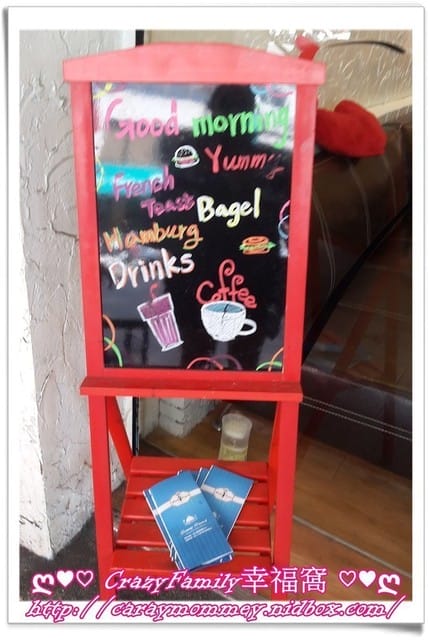 Good morning
Yummy
French
Toast
Bagel
Hamburg
Drinks
Coffee
ღ♥♡ CrazyFamily幸福窩 ♡♥ღ
http://caraymommey.nidbox.com/